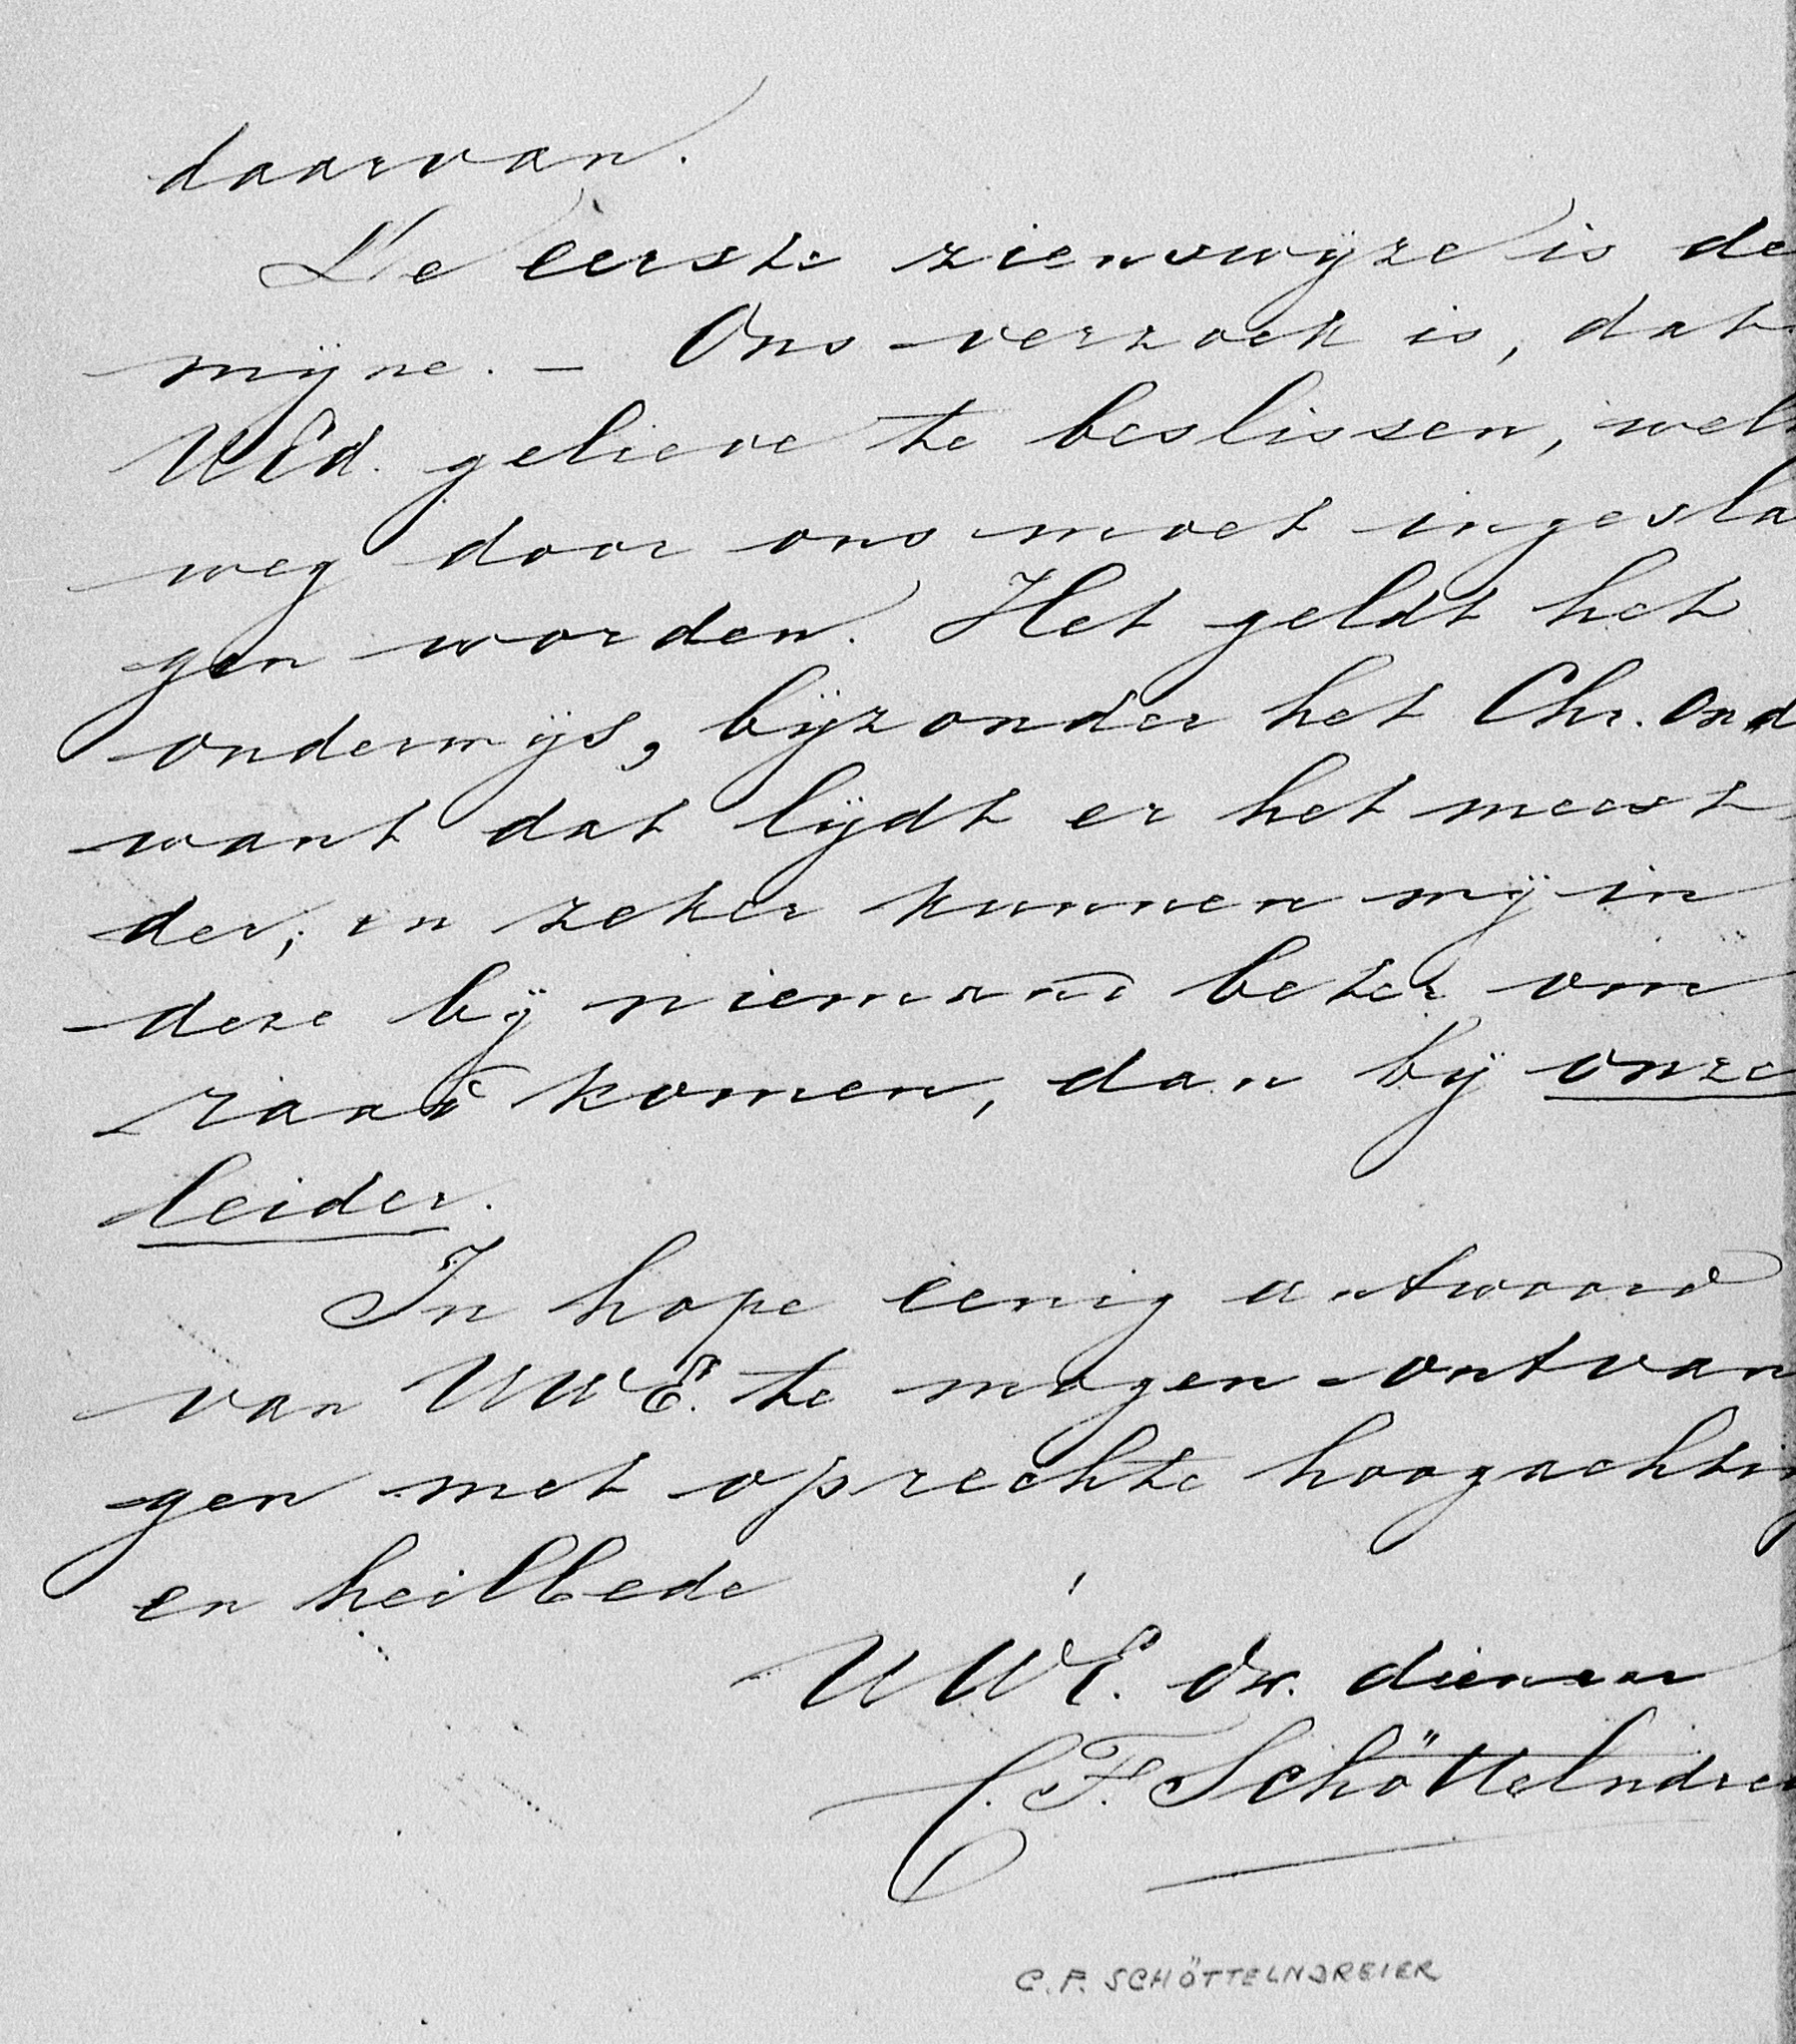 daarvan.
De eerste zienswijze is de
mijne. — Ons verzoek is, dat
UEd. gelieve te beslissen, welk
weg door ons moet ingesla
gen worden. Het geldt het
onderwijs, bijzonder het Chr. Ond
want dat lijdt er het meest
der; en zeker kunnen wij in
deze bij niemand beter om
raad komen, dan bij onze
leider.
In hope eenig antwoord
van UWE. te mogen ontvan
gen met oprechte hoogachting
en heilbede
UWE. Dw. dienaar
C. F. Schöttelndrei
C. F. SCHÖTTELNDREIER